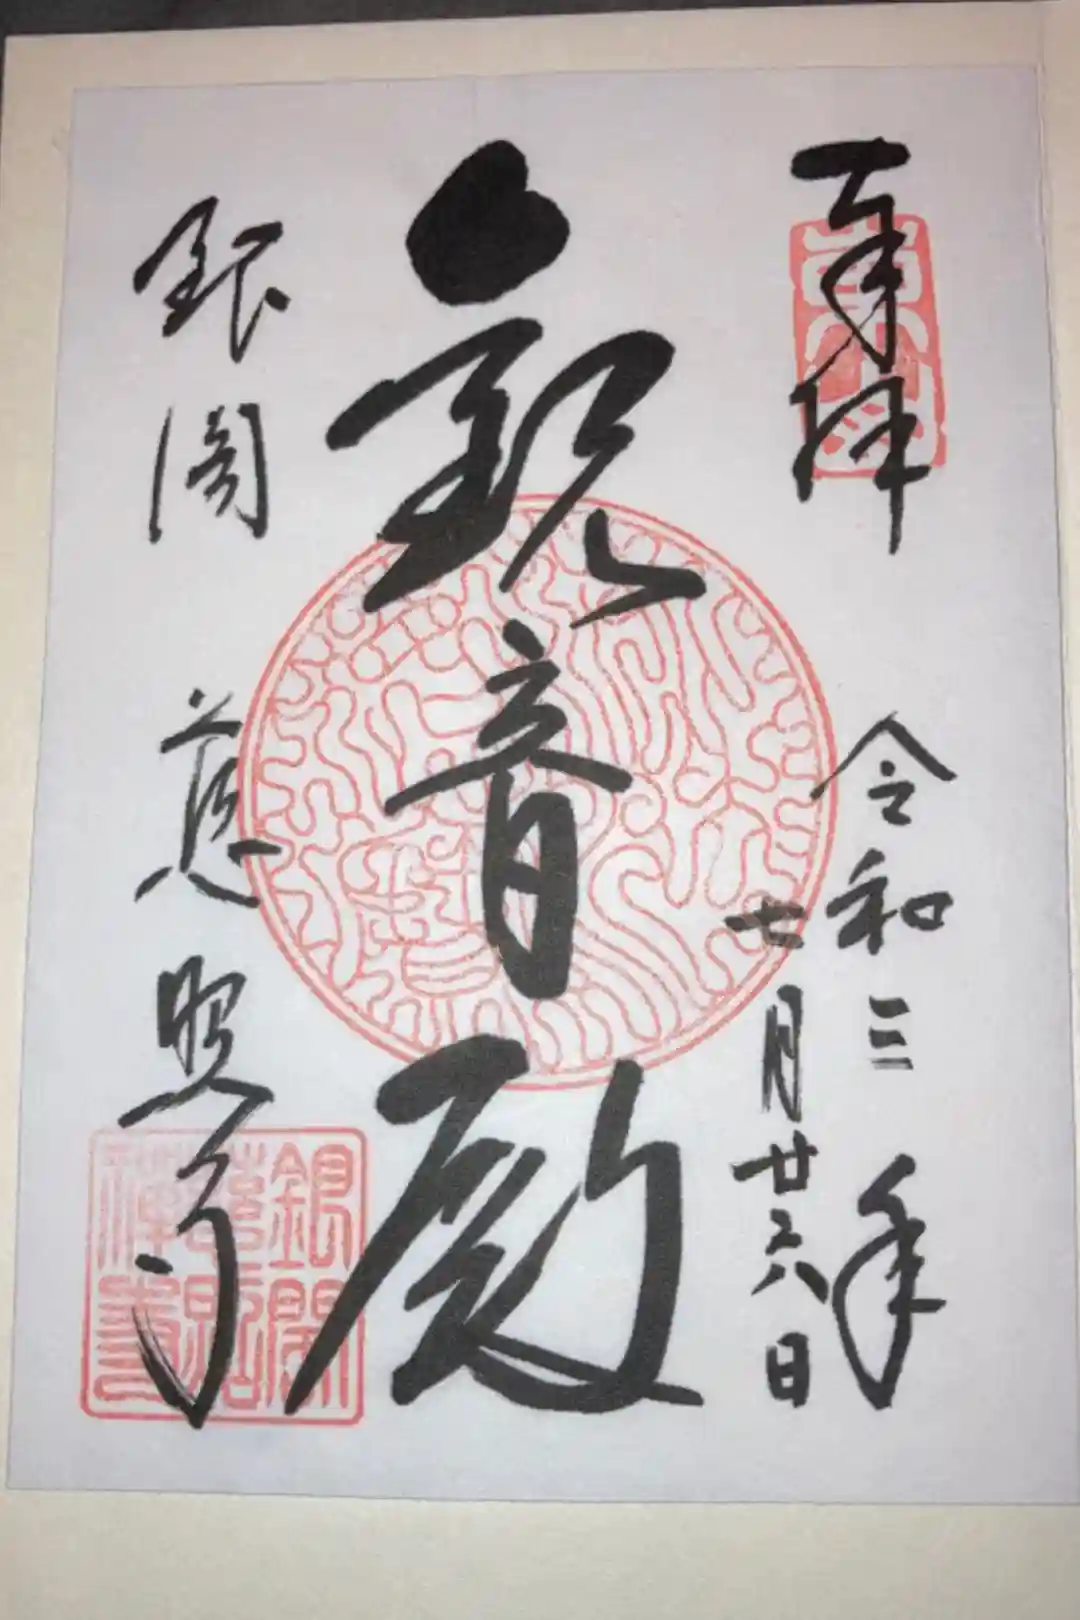 奉拝
令和三年
七月廿六日
観音殿
銀閣
慈照寺
銀閣
慈照
禅寺